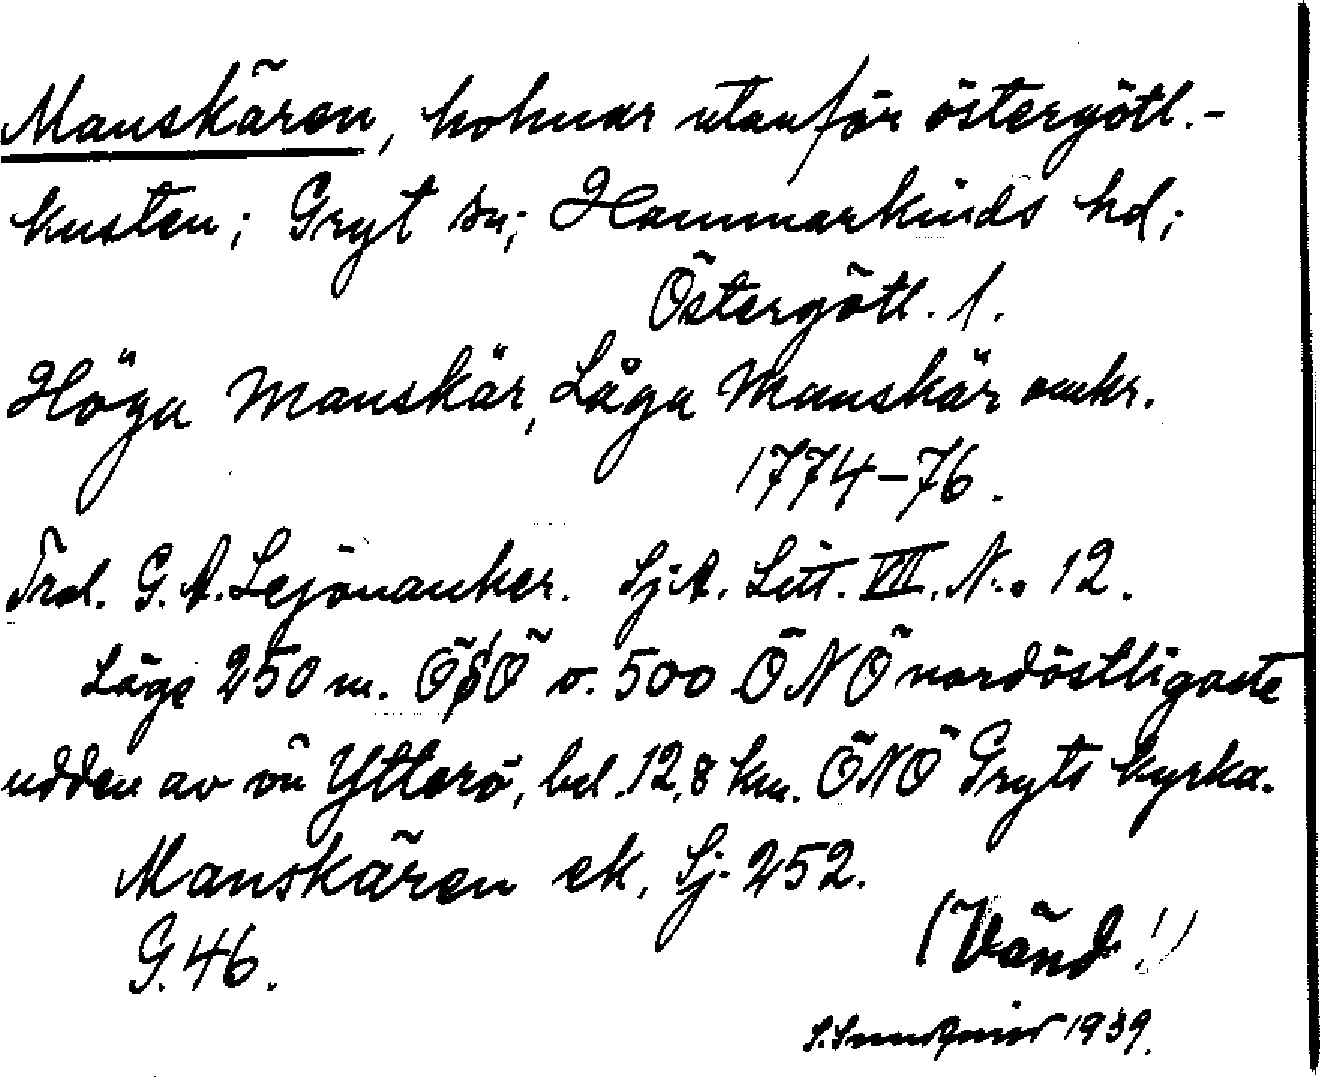 Manskären, holmar utanför östergötl.-
kusten; Gryt sn; Hammarkinds hd;
Östergötl. l.
Höga Manskär, Låga Manskär omkr.
1774-76.
Trol. G. A. Lejonanker. Sj.A. Litt. VII. N:o 12.
Läge 250 m. ÖSÖ o. 500 ÖNÖ nordöstligaste
udden av ön Ytterö, bel. 12,8 km. ÖNÖ Gryts kyrka.
Manskären ek. Sj. 252.
G. 46.
(Vänd!)
1939.